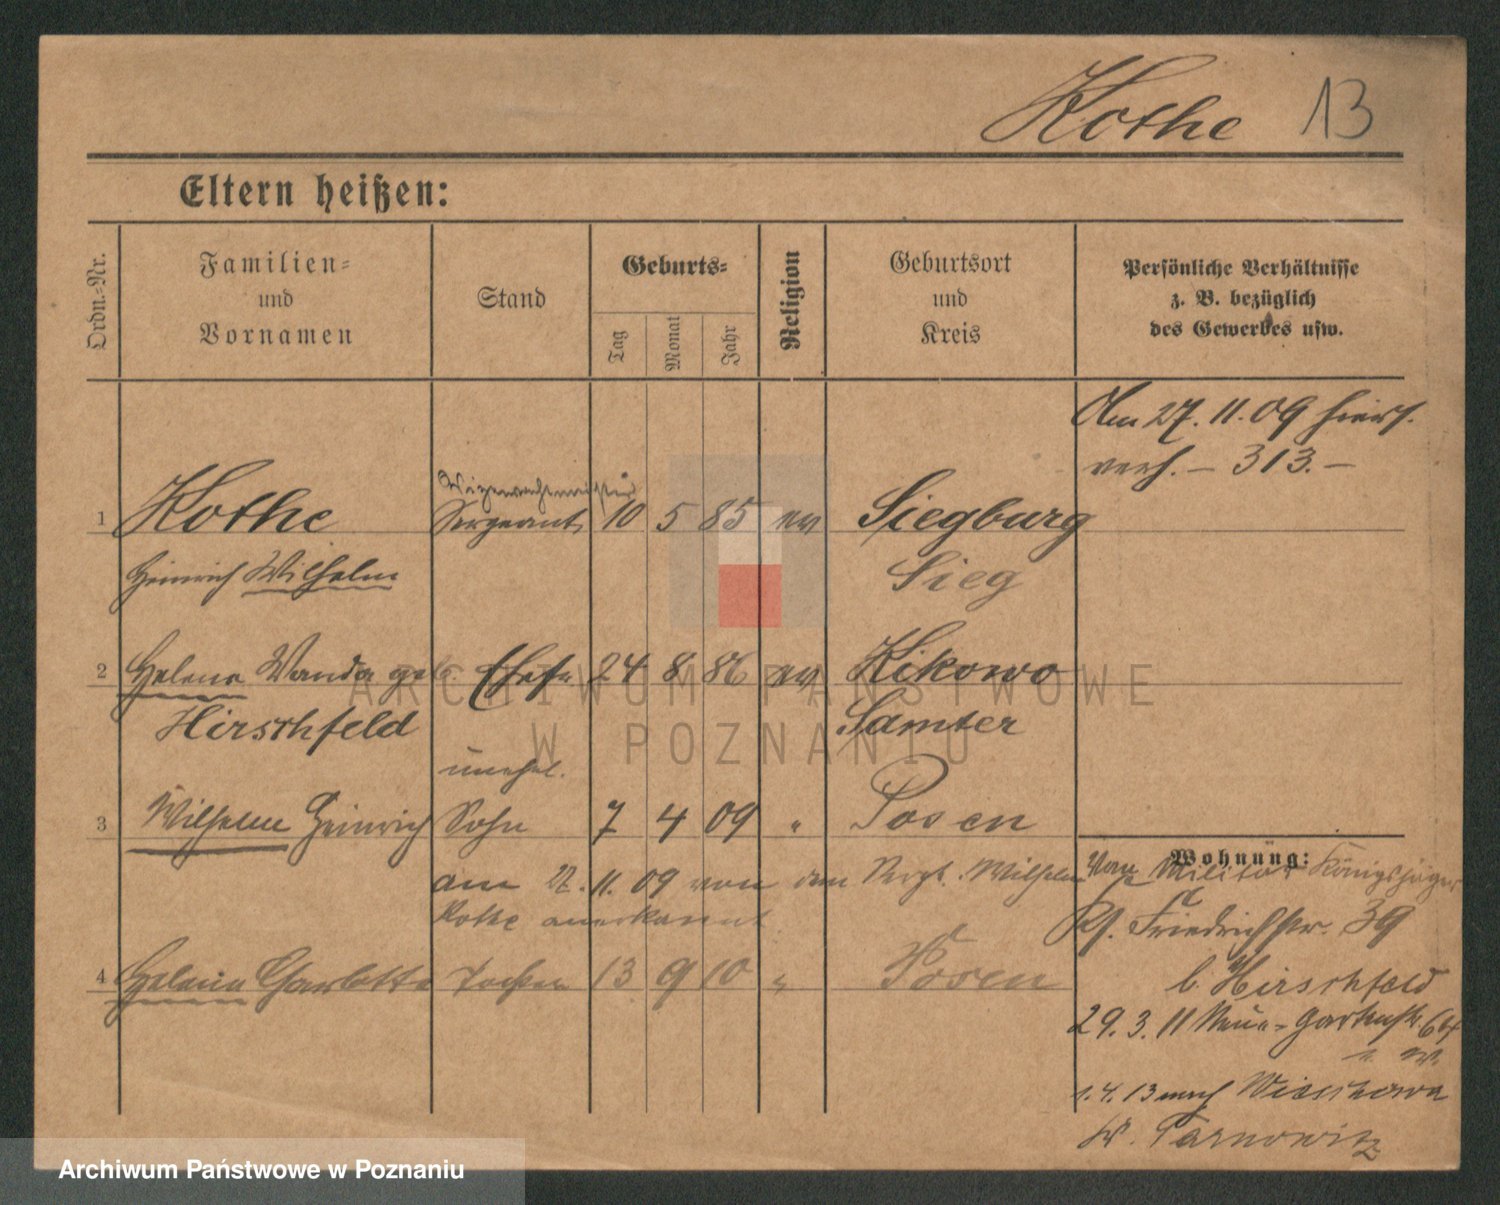 Kothe 13
Eltern heißen:
Ordn.-Nr.
Familien-
und
Vornamen
Stand
Geburts-
Tag
Monat
Jahr
Religion
Geburtsort
und
Kreis
Persönliche Verhältnisse
z. B. bezüglich
des Gewerbes usw.
Am 27. 11. 09 hier
verh. – 313. –
Vizewachtmeister
1 Kothe Sergeant 10 5 85 ev Siegburg
Heinrich Wilhelm Sieg
2 Helene Wanda geb. Ehefr 24 8 86 ev Kikowo
Hirschfeld Samter
unehel.
3 Wilhelm Heinrich Sohn 7 4 09 " Posen
am 27. 11. 09 von dem Sergt. Wilhelm
Kothe anerkannt
4 Helene Charlotte Tochter 13 9 10 " Posen
Wohnung:
Von Militär Königsjäger
Pf. Friedrichstr. 39
b. Hirschfeld
29. 3. 11 Neue-Gartenstr 64
1. 4. 13 nach
Kr. Tarnowitz
ARCHIWUM PAŃSTWOWE
W POZNANIU
Archiwum Państwowe w Poznaniu